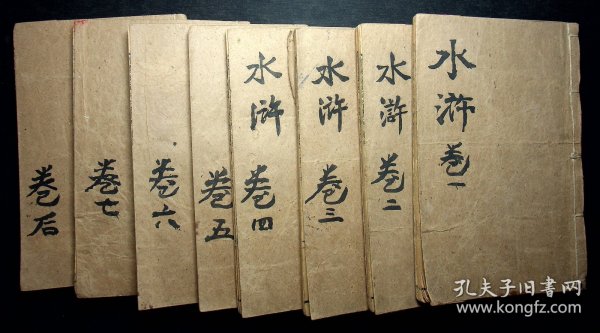 水浒
卷一
水浒
卷二
水浒
卷三
水浒
卷四
卷五
卷六
卷七
卷后
孔夫子旧书网
www.kongfz.com